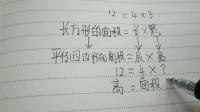 12=4×3
长方形的面积=长×宽
平行四边形的面积=底×高
12=4×?
高=面积